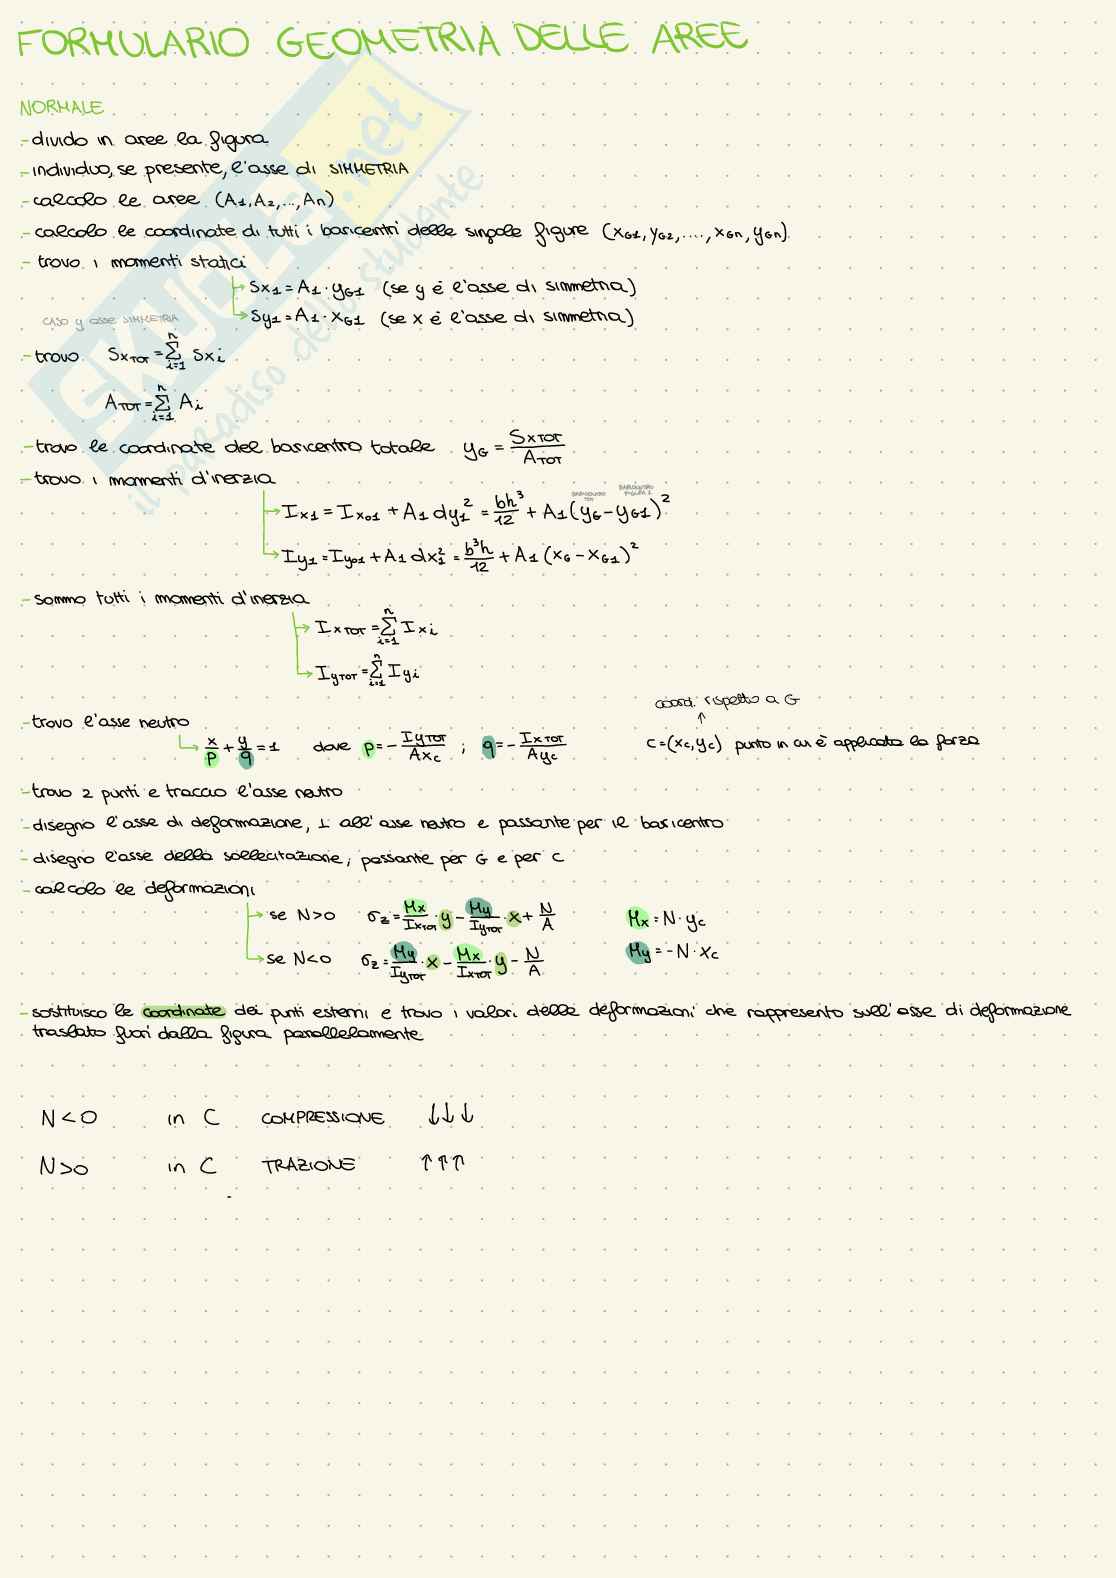 FORMULARIO GEOMETRIA DELLE AREE
NORMALE
- divido in aree la figura
- individuo, se presente, l'asse di SIMMETRIA
- calcolo le aree (A1, A2, ..., An)
- calcolo le coordinate di tutti i baricentri delle singole figure (xG1, yG2, ...., xGn, yGn)
- trovo i momenti statici
Sx1 = A1 · yG1 (se y è l'asse di simmetria)
Sy1 = A1 · xG1 (se x è l'asse di simmetria)
CASO y asse SIMMETRIA
- trovo SxTOT = Σ(i=1, n) Sxi
ATOT = Σ(i=1, n) Ai
- trovo le coordinate del baricentro totale yG = SxTOT / ATOT
- trovo i momenti d'inerzia
BARICENTRO TOT BARICENTRO FIGURA 1
Ix1 = Ix01 + A1 dy1² = bh³/12 + A1 (yG - yG1)²
Iy1 = Iy01 + A1 dx1² = b³h/12 + A1 (xG - xG1)²
- sommo tutti i momenti d'inerzia
IxTOT = Σ(i=1, n) Ixi
IyTOT = Σ(i=1, n) Iyi
coord. rispetto a G
- trovo l'asse neutro
x/p + y/q = 1 dove p = - IyTOT / Axc ; q = - IxTOT / Ayc C = (xc, yc) punto in cui è applicata la forza
- trovo 2 punti e traccio l'asse neutro
- disegno l'asse di deformazione, ⊥ all'asse neutro e passante per il baricentro
- disegno l'asse della sollecitazione, passante per G e per C
- calcolo le deformazioni
se N>0 σz = Mx/IxTOT · y - My/IyTOT · x + N/A Mx = N · yc
se N<0 σz = My/IyTOT · x - Mx/IxTOT · y - N/A My = -N · xc
- sostituisco le coordinate dei punti esterni e trovo i valori delle deformazioni che rappresento sull'asse di deformazione
traslato fuori dalla figura parallelamente
N < 0 in C COMPRESSIONE ↓↓↓
N > 0 in C TRAZIONE ↑↑↑
SKUOLA.net
il paradiso dello studente